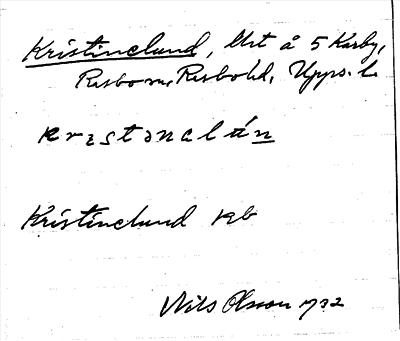 Kristinelund, Utst å 5 Karby,
Rasbo sn, Rasbo hd, Upps. l.
krıstənalún
Kristinelund
Nils Olsson 1732